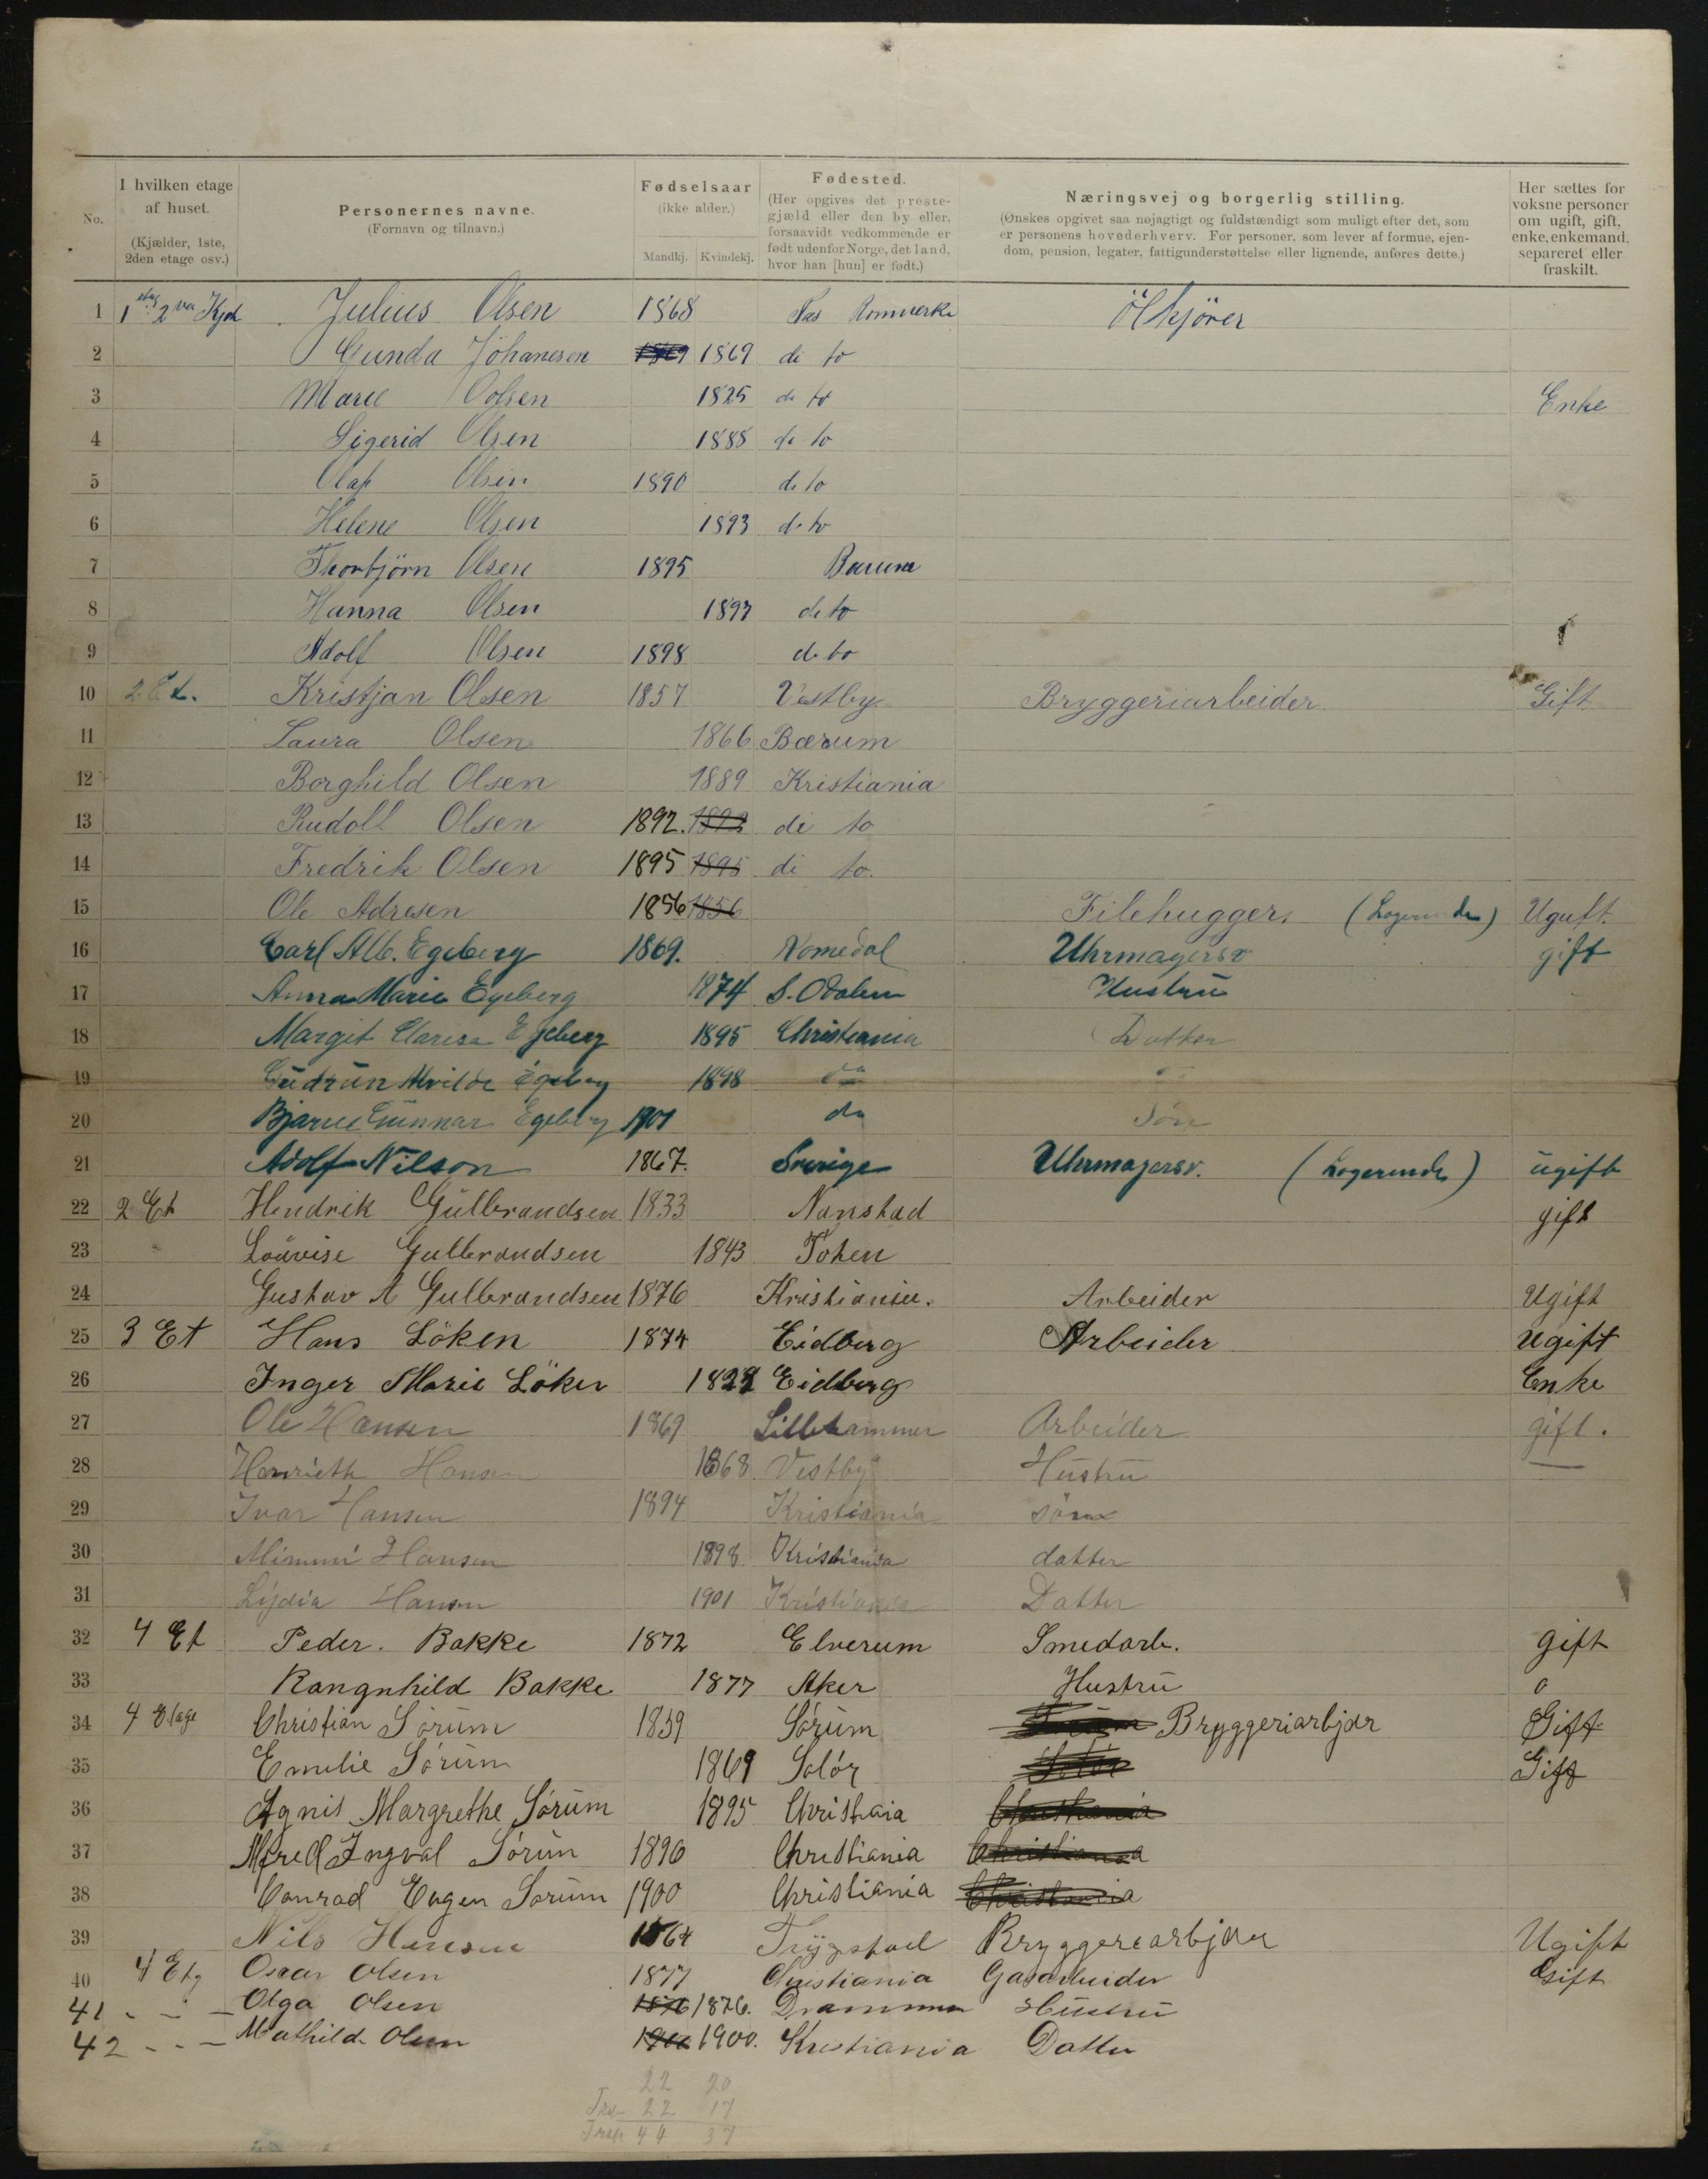 No. I hvilken etage af huset. (Kjælder, 1ste, 2den etage osv.) Personernes navne. (Fornavn og tilnavn.) Fødselsaar (ikke alder.) Mandkj. Kvindekj. Fødested. (Her opgives det prestegjæld eller den by eller, forsaavidt vedkommende er født udenfor Norge, det land, hvor han [hun] er født.) Næringsvej og borgerlig stilling. (Ønskes opgivet saa nøjagtigt og fuldstændigt som muligt efter det, som er personens hovederhverv. For personer, som lever af formue, ejendom, pension, legater, fattigunderstøttelse eller lignende, anføres dette.) Her sættes for voksne personer om ugift, gift, enke, enkemand, separeret eller fraskilt.
1 1 etag 2 Julius Olsen 1868 Nes Romerke Ölkjörer
2 Gunda Johanesen 1869 1869 di to
3 Marie Oolsen 1825 de to Enke
4 Sigerid Olsen 1888 de to
5 Olaf Olsen 1890 de to
6 Helene Olsen 1893 de to
7 Thorbjörn Olsen 1895 Bærum
8 Hanna Olsen 1897 de to
9 Adolf Olsen 1898 de to
10 2 Et. Kristjan Olsen 1857 Vestby Bryggeriarbeider Gift
11 Laura Olsen 1866 Bærum
12 Borghild Olsen 1889 Kristiania
13 Rudolf Olsen 1892. 1892 di to
14 Fredrik Olsen 1895 1895 di to.
15 Ole Adresen 1856 1856 Filehugger (Logerende) Uguft.
16 Carl Alb. Egeberg 1869. Nomedal Uhrmagersv gift
17 Anna Marie Egeberg 1874 S. Odalen Hustru
18 Margit Claresa Egeberg 1895 Christiania Datter
19 Gudrun Alvilde Egeberg 1898 do do
20 Bjarne Gunnar Egeberg 1901 do Sön
21 Adolf Nilson 1867. Sverige Uhrmagersv. (Logerende) ugift
22 2 Et Hendrik Gulbrandsen 1833 Nanstad gift
23 Louvise Gulbrandsen 1843 Toten
24 Gustav A Gulbrandsen 1876 Kristiania. Arbeider Ugift
25 3 Et Hans Löken 1874 Eidberg Arbeider Ugift
26 Inger Marie Löken Eidberg Enke
27 Ole Hansen 1869 Lillehammer Arbeider gift.
28 Henrieth Hansen 1868 Vestby Hustru —
29 Ivar Hansen 1894 Kristiania sön
30 Mimmi Hansen 1898 Kristiania datter
31 Lydia Hansen 1901 Kristiania Datter
32 4 Et Peder. Bakke 1872 Elverum Smedarb. gift
33 Rangnhild Bakke 1877 Aker Hustru o
34 4 Etage Christian Sörum 1859 Sörum Bryggeriarbjdr Gift
35 Emelie Sörum 1869 Solör Solör Gift
36 Agnis Margrethe Sörum 1895 Christiaia Christiania
37 Alfred Ingval Sörum 1896 Christiania Christiania
38 Conrad Eugen Sorum 1900 Christiania Christiania
39 Nils Hansen 1864 Trygstad Bryggerearbjder Ugift
40 4 Etg Oscar Olsen 1877 Christiania Gasarbeider Gift
41 - - - Olga Olsen 1876 1876. Drammen Hustru
42 - - - Mathilde Olsen 1900 1900. Kristiania Datter
22 20
22 17
44 37